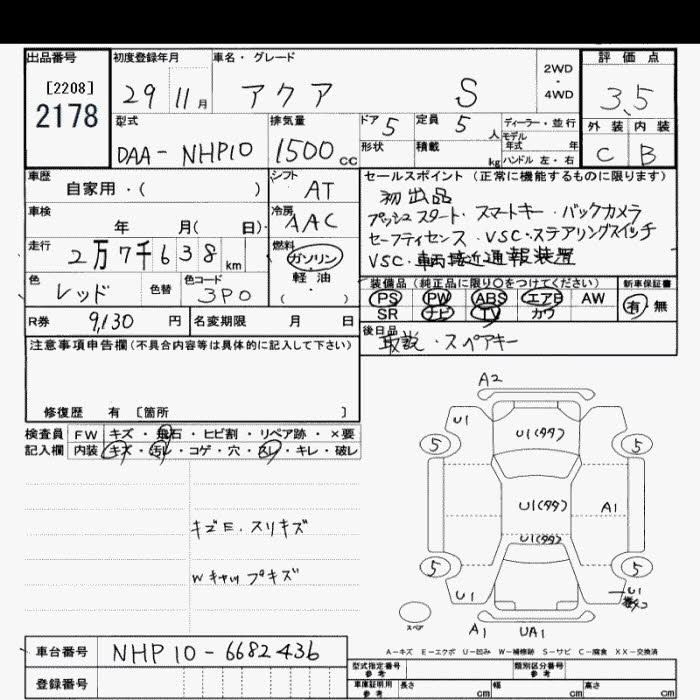 出品番号 初度登録年月 車名・グレード 2WD・4WD 評価点
[2208] 2178
29 11月 アクア S 3.5
型式 排気量 ドア 5 定員 5 人 ディーラー・並行 外装 内装
モデル年式 年
DAA-NHP10 1500cc 形状 積載 kg ハンドル 左・右 C B
車歴 シフト セールスポイント(正常に機能するものに限ります)
自家用・( ) AT 初出品
車検 冷房 プッシュスタート・スマートキー・バックカメラ
年 月( 日) AAC セーフティセンス・VSC・ステアリングスイッチ
走行 燃料 VSC・車両接近通報装置
2万7千638km ガソリン・軽油・( )
色 色替 色コード 装備品(純正品に限り○をつけてください) 新車保証書
レッド 3P0 PS PW ABS エアB AW 有・無
SR ナビ TV カワ
R券 9,130 円 名変期限 月 日 後日品
取説・スペアキー
注意事項申告欄(不具合内容等は具体的に記入して下さい)
修復歴 有 [箇所 ]
検査員 FW キズ・飛石・ヒビ割・リペア跡・×要
記入欄 内装 キズ・汚レ・コゲ・穴・スレ・キレ・破レ
A2
U1 U1(タタ)
5 5
U1(タタ) A1
U1(タタ)
キズE.スリキズ
5 5
Wキャップキズ
U1 U1
スペア A1 UA1
A-キズ E-エクボ U-凹み W-補修跡 S-サビ C-腐食 XX-交換済
車台番号 NHP10-6682436
型式指定番号 参考 類別区分番号 参考
登録番号 車庫証明用 参考 長さ cm 幅 cm 高さ cm